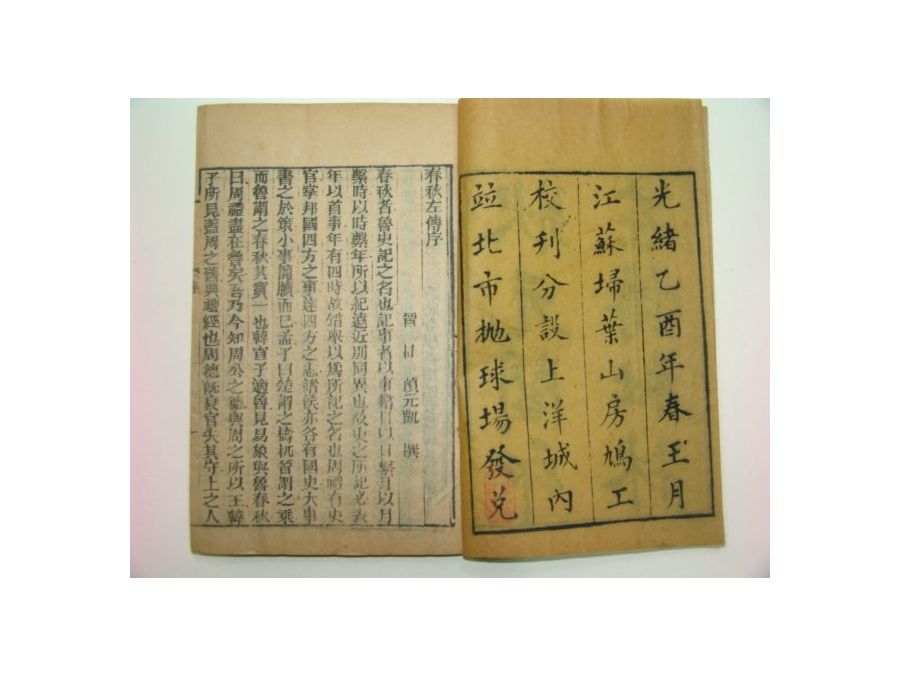 光緒乙酉年春王月
江蘇埽葉山房鳩工
校刋分設上洋城內
竝北市抛球場發兌
春秋左傳序
晉 杜 預元凱 撰
春秋者魯史記之名也記事者以事繫日以日繫月以月
繫時以時繫年所以紀遠近別同異也故史之所記必表
年以首事年有四時故錯舉以爲所記之名也周禮有史
官掌邦國四方之事達四方之志諸侯亦各有國史大事
書之於策小事簡牘而已孟子曰楚謂之檮杌晉謂之乘
而魯謂之春秋其實一也韓宣子適魯見易象與魯春秋
曰周禮盡在魯矣吾乃今知周公之德與周之所以王韓
子所見蓋周之舊典禮經也周德旣衰官失其守上之人